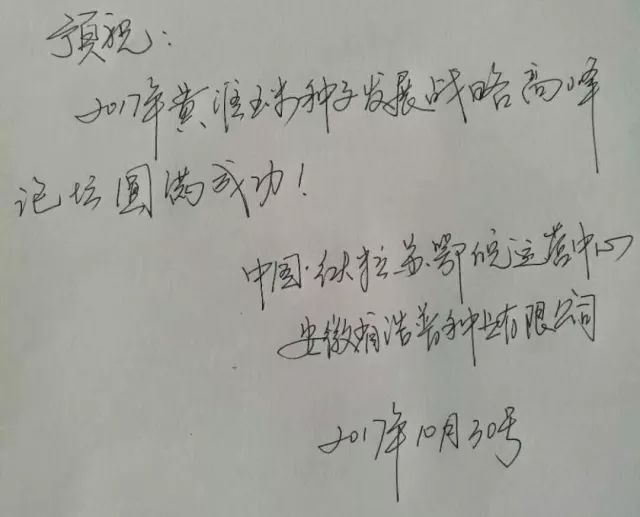 预祝：
2017年黄淮玉米种子发展战略高峰
论坛圆满成功！
中国·伏拉苏鄂皖运营中心
安徽省浩普种业有限公司
2017年10月30号